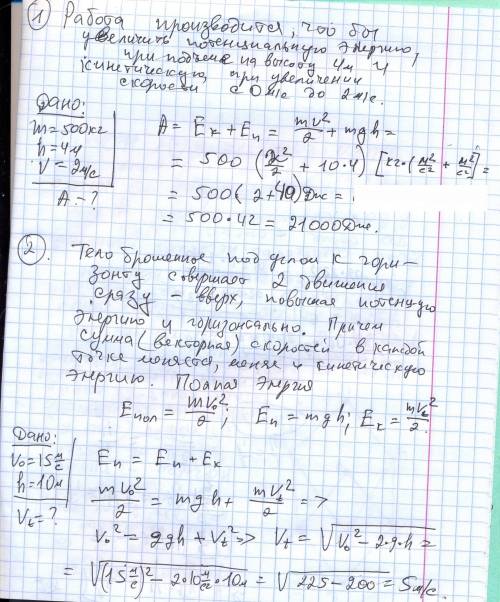 1) Работа производится, что бы
увеличить потенциальную энергию,
при подъеме на высоту 4м и
кинетическую, при увеличении
скорости с 0 м/с до 2 м/с.
Дано:
m = 500кг
h = 4м
V = 2м/с
A - ?
A = Eк + Eп = mv²/2 + mgh =
= 500 (2²/2 + 10·4) [кг·(м²/с² + м²/с²)] =
= 500(2+40) Дж =
= 500·42 = 21000 Дж.
2. Тело брошенное под углом к гори-
зонту совершает 2 движения
сразу - вверх, повышая потенц.
энергию и горизонтально. Причем
сумма (векторная) скоростей в каждой
точке меняется, меняя и кинетическую
энергию. Полная энергия
Eпол = mV₀²/2; Eп = mgh; Eк = mVt²/2.
Дано:
V₀ = 15 м/с
h = 10м
Vt = ?
Eп = Eп + Eк
mV₀²/2 = mgh + mVt²/2 =>
V₀² = 2gh + Vt² => Vt = √(V₀² - 2·g·h) =
= √((15 м/с)² - 2·10 м/с²·10м) = √(225 - 200) = 5 м/с.